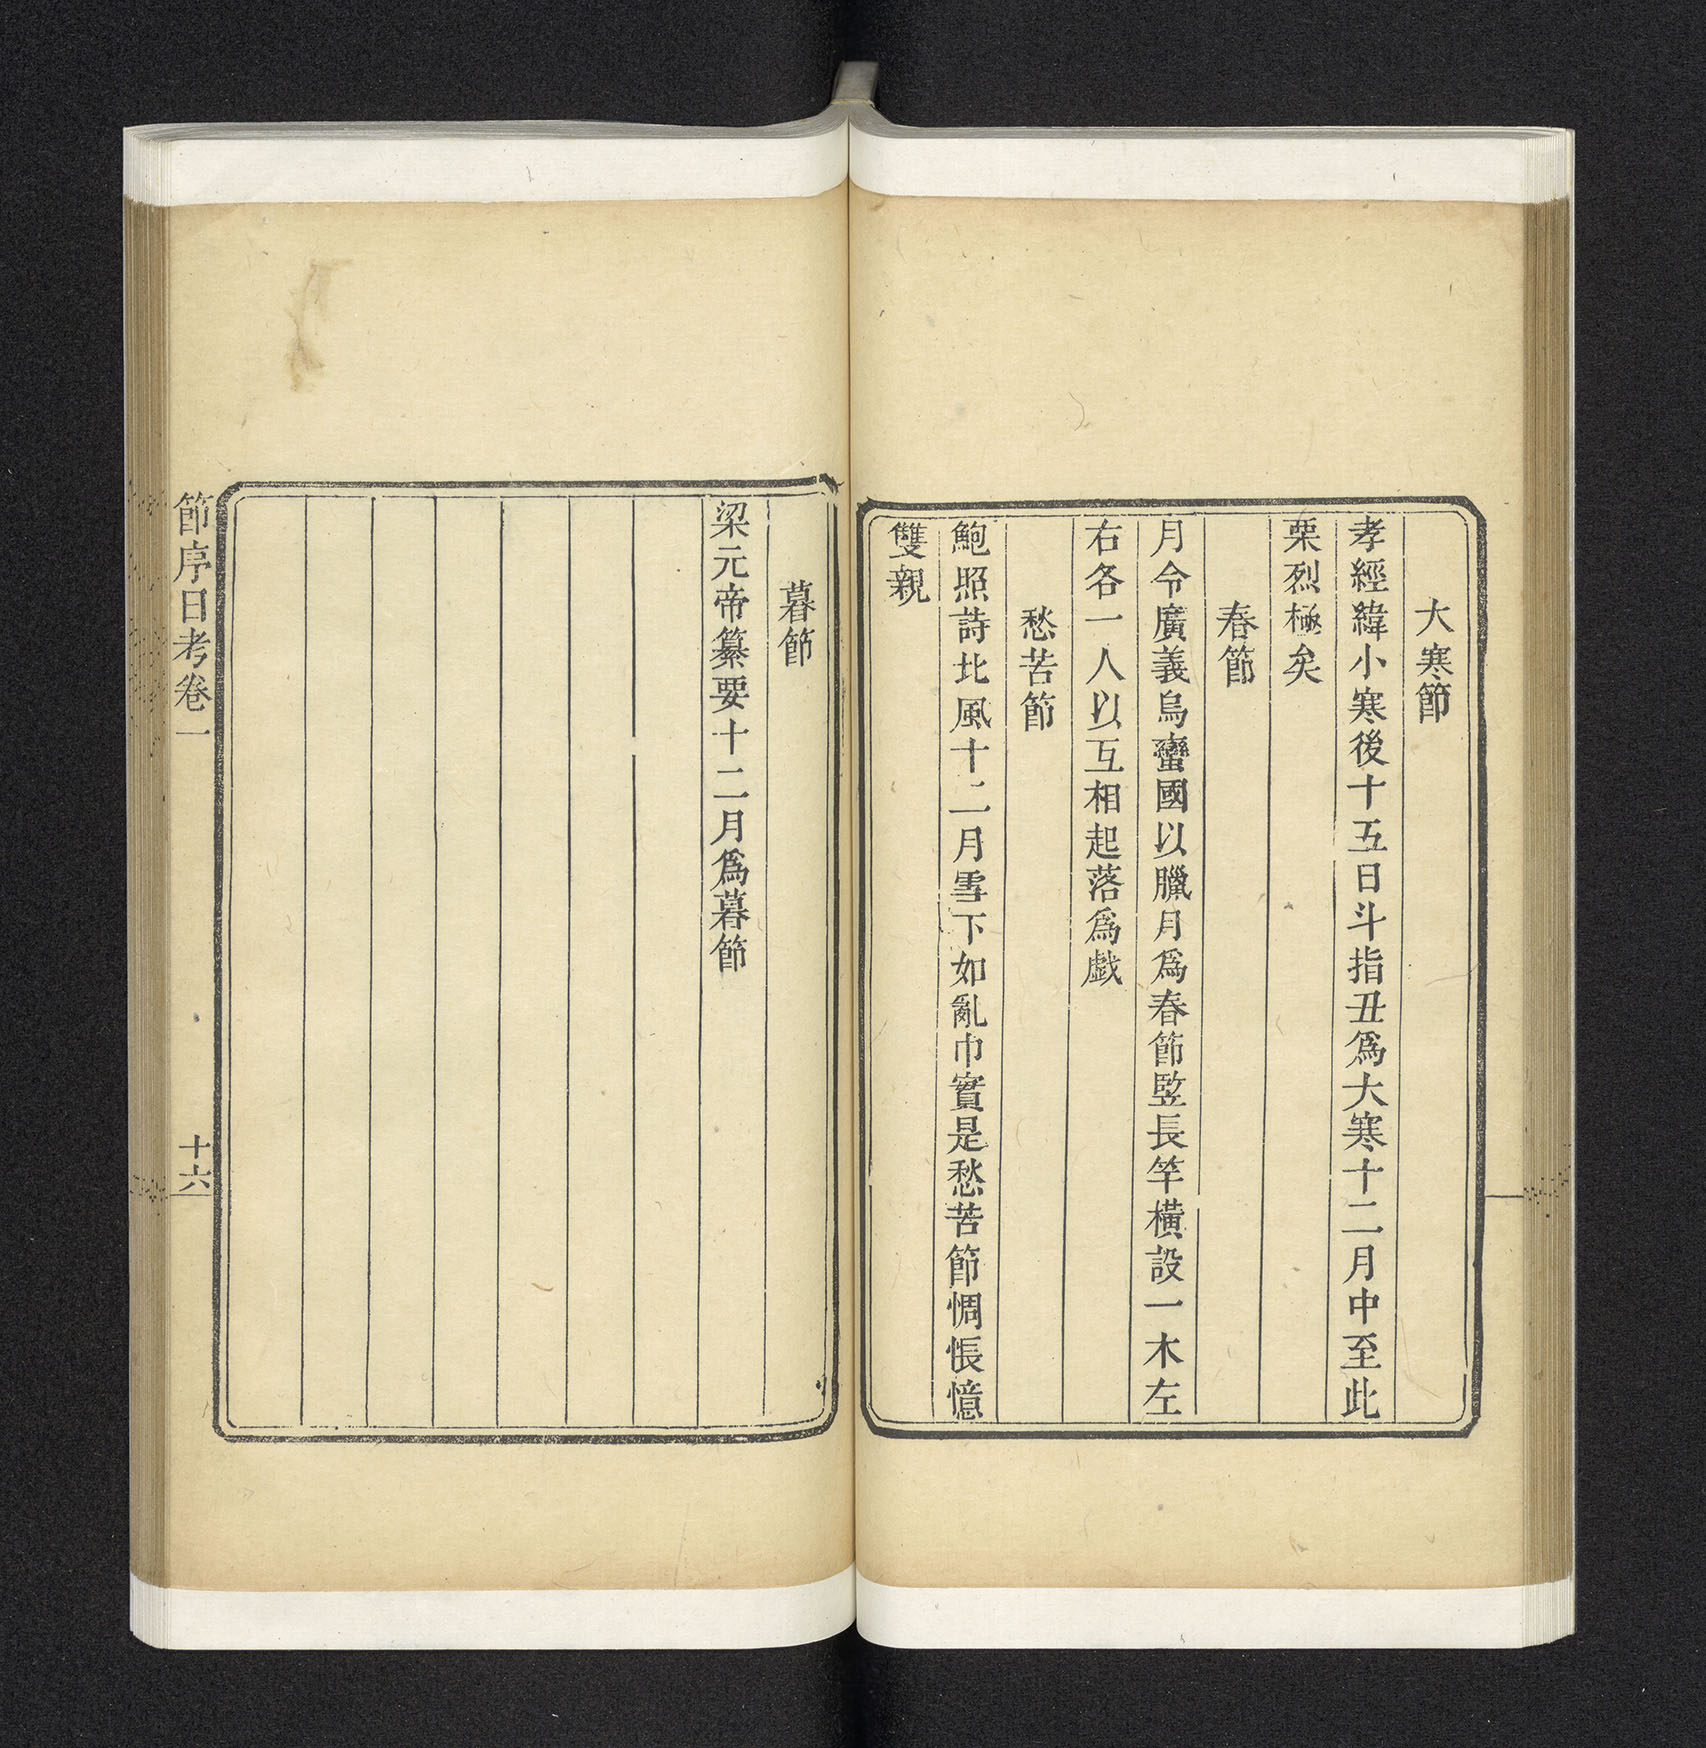 大寒節
孝經緯小寒後十五日斗指丑爲大寒十二月中至此
栗烈極矣
春節
月令廣義烏蠻國以臘月爲春節竪長竿橫設一木左
右各一人以互相起落爲戯
愁苦節
鮑照詩北風十二月雪下如亂巾實是愁苦節惆悵憶
雙親
暮節
梁元帝纂要十二月爲暮節
節序日考卷一
十六